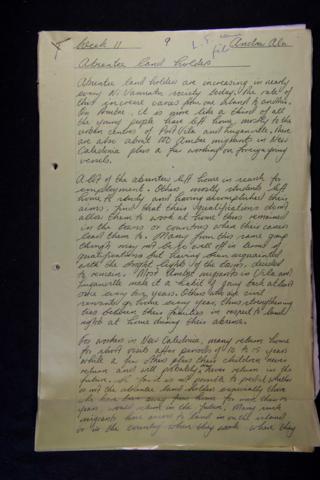 Week 11 9
Absentee land holders
Absentee land holders are increasing in nearly
every Ni-Vanuatu society today. The rate of
that increase varies from one island to another.
On Ambae, it is some like a third of all
the young people have left home, mostly to the
urban centres of Port Vila and Luganville. There
are also about 100 migrants in New
Caledonia plus a few working on foreign fishing
vessels.
A lot of the absentees left home in search for
employment. Others, mostly students left
home to study and having accomplished their
aims, find that their qualifications don't
allow them to work at home thus remained
in the towns or countries when their careers
lead them to. Many from this same group
though may not be so well off in terms of
qualifications but having been acquainted
with the bright lights of the towns, decided
to remain. Most migrants in Vila and
Luganville make it a habit of going back at least
once every few years. Others who are
once or twice every year, thus strengthening
ties between their families in respect to land
right at home during their absence.
For workers in New Caledonia, many return home
for short visits after periods of 10 to 15 years
while a few others plus their children never
return and will probably never return in the
future. it is not possible to predict whether
or not the absentee land holders especially those
who have been away from home for more than
years, would return in the future. Many such
migrants have access to land in another island
or in the country where they work where they